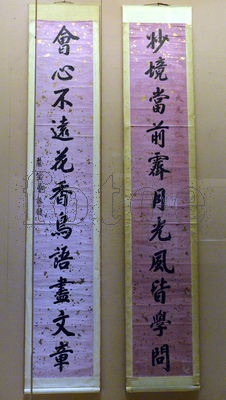 妙境當前霽月光風皆學問
會心不遠花香鳥語盡文章